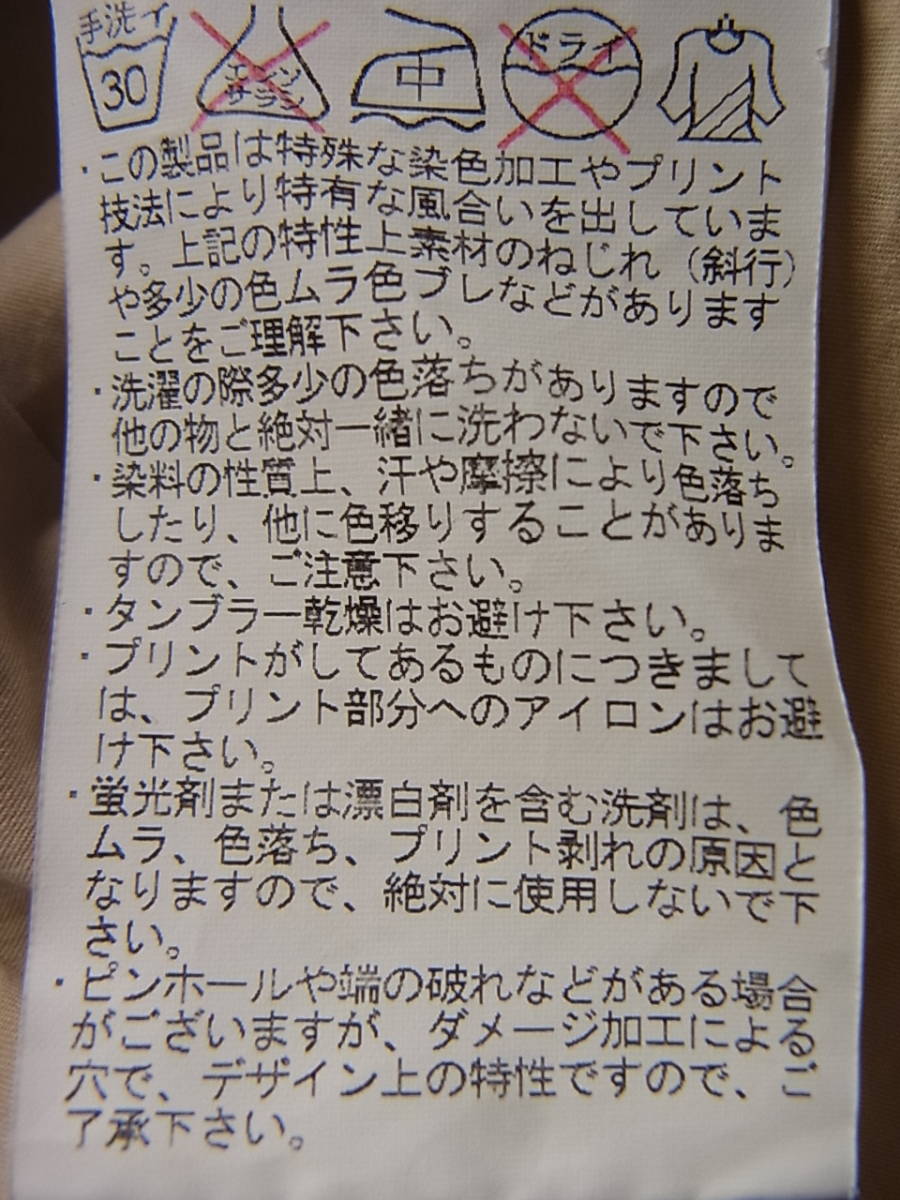 手洗イ 30 エンソ サラシ 中 ドライ
・この製品は特殊な染色加工やプリント
技法により特有な風合いを出していま
す。上記の特性上素材のねじれ（斜行）
や多少の色ムラ色ブレなどがあります
ことをご理解下さい。
・洗濯の際多少の色落ちがありますので
他の物と絶対一緒に洗わないで下さい。
・染料の性質上、汗や摩擦により色落ち
したり、他に色移りすることがありま
すので、ご注意下さい。
・タンブラー乾燥はお避け下さい。
・プリントがしてあるものにつきまして
は、プリント部分へのアイロンはお避
け下さい。
・蛍光剤または漂白剤を含む洗剤は、色
ムラ、色落ち、プリント剥れの原因と
なりますので、絶対に使用しないで下
さい。
・ピンホールや端の破れなどがある場合
がございますが、ダメージ加工による
穴で、デザイン上の特性ですので、ご
了承下さい。